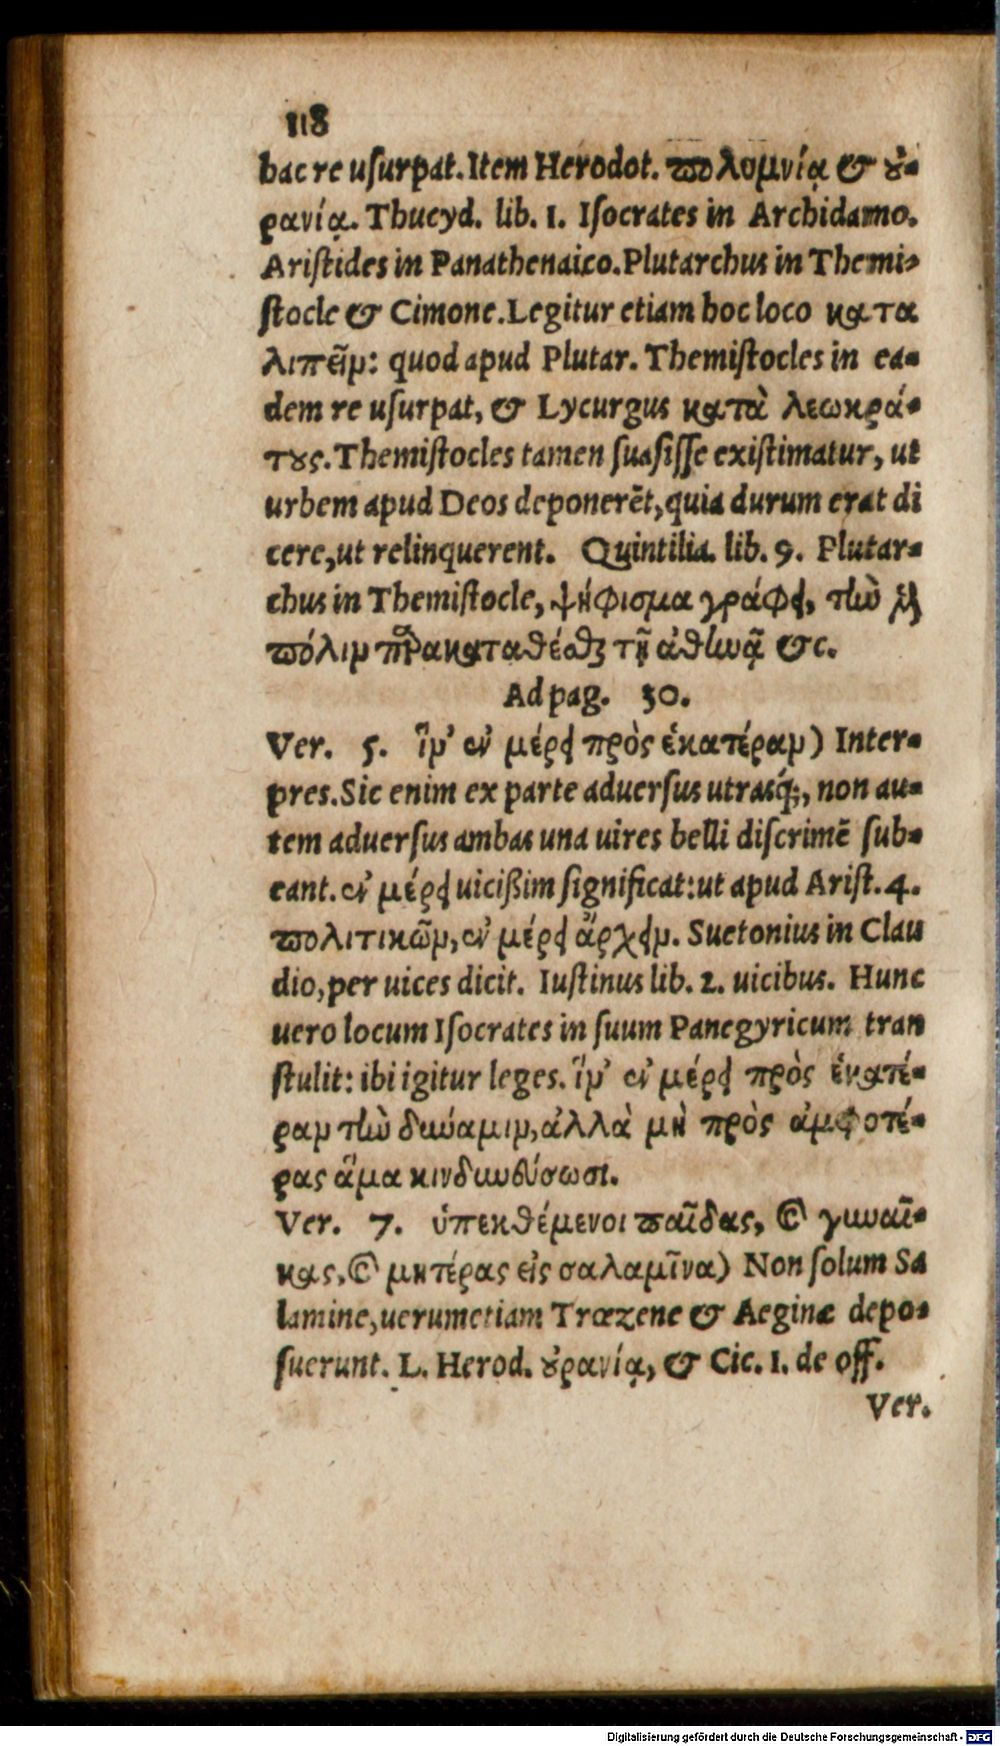 118
hac re uſurpat. Item Herodot. πολυμνίᾳ & ȣ̓-
ρανίᾳ. Thucyd. lib. 1. Iſocrates in Archidamo.
Ariſtides in Panathenaico. Plutarchus in Themi-
ſtocle & Cimone. Legitur etiam hoc loco κατα
λιπεῖν: quod apud Plutar. Themiſtocles in ea-
dem re uſurpat, & Lycurgus κατὰ λεωκρά-
τȣς. Themiſtocles tamen ſuaſiſſe exiſtimatur, ut
urbem apud Deos deponerēt, quia durum erat di
cere, ut relinquerent. Quintilia. lib. 9. Plutar-
chus in Themiſtocle, ψήφισμα γράφει, τὴν μὲν
πόλιν παρακαταθέσθαι τῇ ἀθηνᾷ &c.
Ad pag. 30.
Ver. 5. ἵν' ἐν μέρει πρὸς ἑκατέραν) Inter-
pres. Sic enim ex parte aduerſus utrasq;, non au-
tem aduerſus ambas una uires belli diſcrimē ſub-
eant. ἐν μέρει uicißim ſignificat: ut apud Ariſt. 4.
πολιτικῶν, ἐν μέρει ἄρχειν. Suetonius in Clau
dio, per uices dicit. Iuſtinus lib. 2. uicibus. Hunc
uero locum Iſocrates in ſuum Panegyricum tran
ſtulit: ibi igitur leges. ἵν' ἐν μέρει πρὸς ἑκατέ-
ραν τὴν δύναμιν, ἀλλὰ μὴ πρὸς ἀμφοτέ-
ρας ἅμα κινδυνεύσωσι.
Ver. 7. ὑπεκθέμενοι παῖδας, καὶ γυναῖ-
κας, καὶ μητέρας εἰς σαλαμῖνα) Non ſolum Sa
lamine, uerumetiam Trœzene & Aeginæ depo-
ſuerunt. L. Herod. ȣ̓ρανίᾳ, & Cic. 1. de off.
Ver.
Digitalisierung gefördert durch die Deutsche Forschungsgemeinschaft - DFG